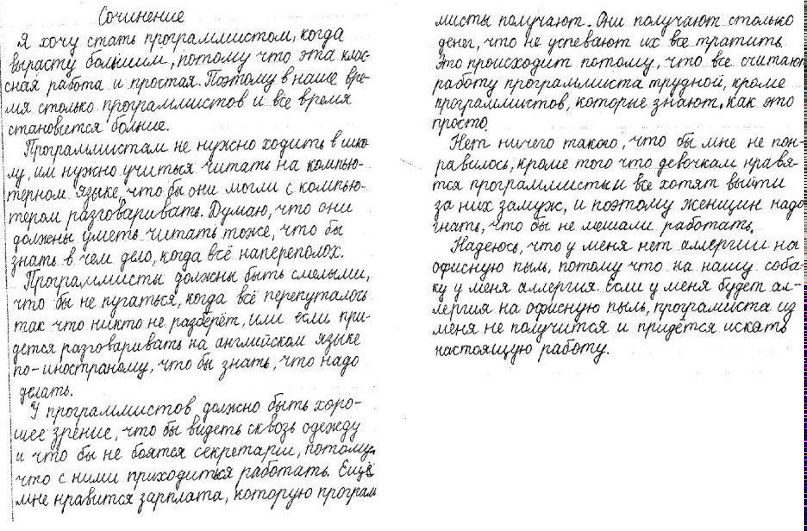 Сочинение
Я хочу стать программистом, когда
вырасту большим, потому что эта клас-
сная работа и простая. Поэтому в наше вре-
мя столько программистов и все время
становится больше.
Программистам не нужно ходить в шко-
лу, им нужно учиться читать на компью-
терном языке, что бы они могли с компью-
тером разговаривать. Думаю, что они
должны уметь читать тоже, что бы
знать в чем дело, когда всё наперополох.
Программисты должны быть смелыми,
что бы не пугаться, когда всё перепуталось
так что никто не разберёт, или если при-
дется разговаривать на английском языке
по-иностраному, что бы знать, что надо
делать.
У программистов должно быть хоро-
шее зрение, что бы видеть сквозь одежду
и что бы не боятся секретарш, потому,
что с ними приходиться работать. Ещё
мне нравится зарплата, которую програм
мисты получают. Они получают столько
денег, что не успевают их все тратить.
Это происходит потому, что все считают
работу программиста трудной, кроме
программистов, которые знают, как это
просто.
Нет ничего такого, что бы мне не пон-
равилось, кроме того что девочкам нравя-
тся программисты и все хотят выйти
за них замуж, и поэтому женщин надо
гнать, что бы не мешали работать.
Надеюсь, что у меня нет аллергии на
офисную пыль, потому что на нашу соба-
ку у меня аллергия. Если у меня будет ал-
лергия на офисную пыль, програмиста из
меня не получится и придётся искать
настоящую работу.